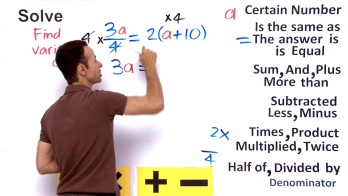 Solve
a Certain Number
Find
vari
4 × 3a/4 = 2(a+10)
×4
3a =
Is the same as
= The answer is
is Equal
Sum, And, Plus
More than
Subtracted
Less, Minus
2x Times, Product
Multiplied, Twice
/4 Half of, Divided by
Denominator
× + −